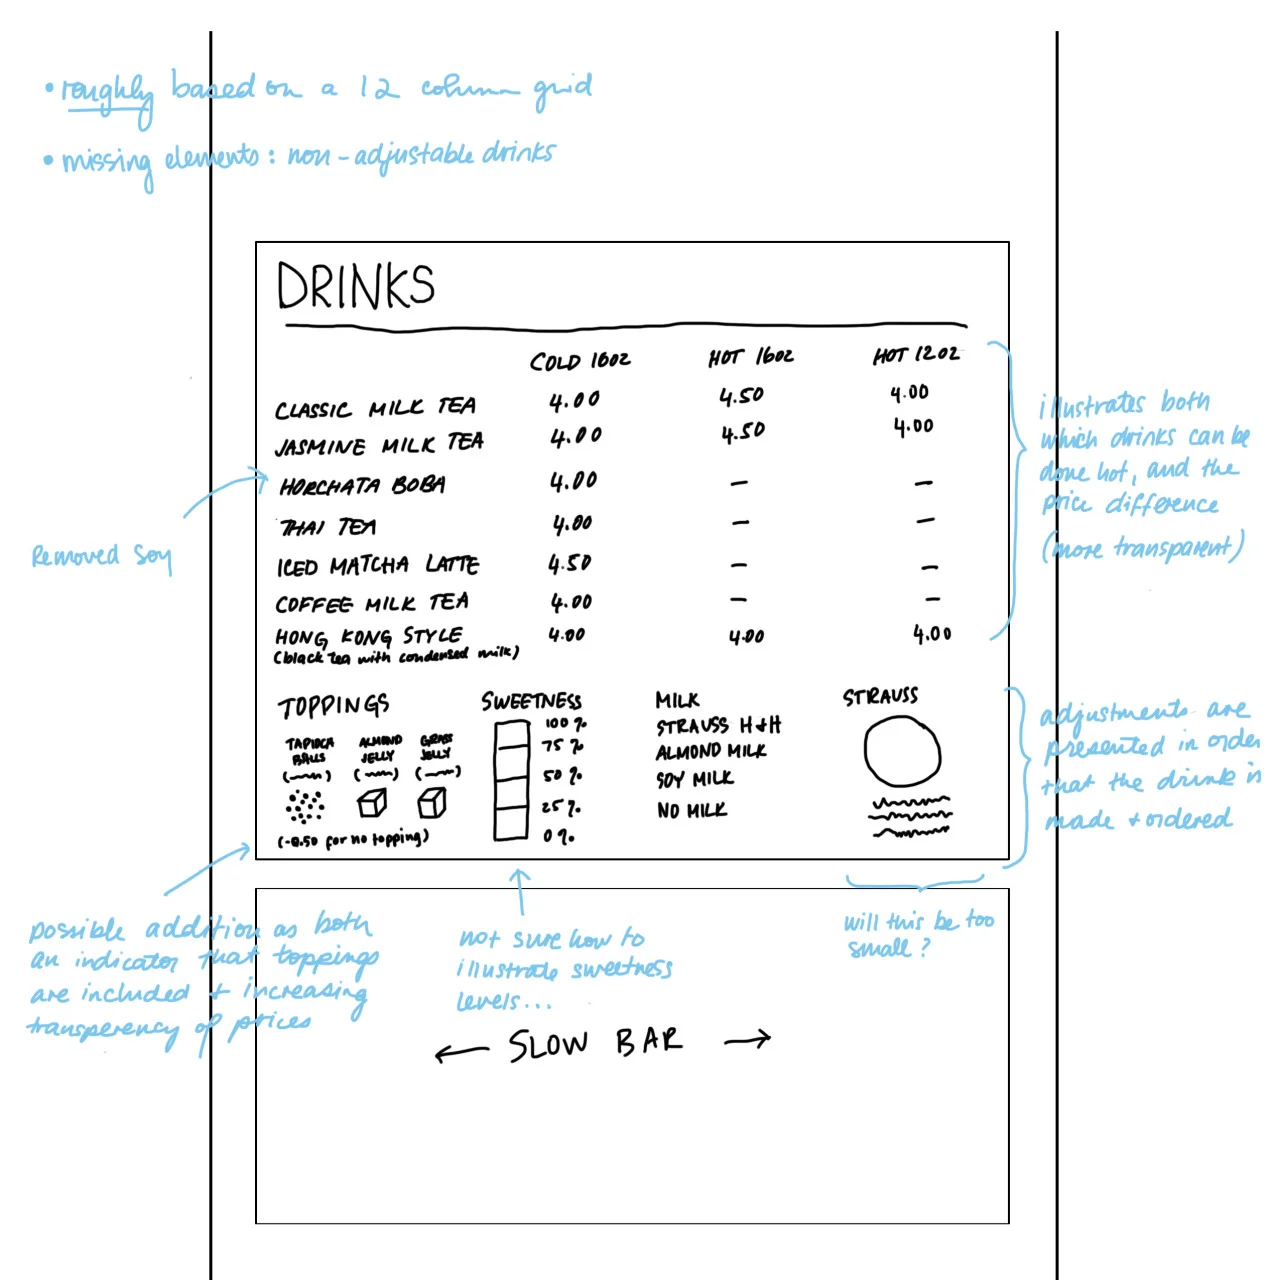 • roughly based on a 12 column grid
• missing elements: non-adjustable drinks
DRINKS
COLD 16oz HOT 16oz HOT 12oz
CLASSIC MILK TEA 4.00 4.50 4.00
JASMINE MILK TEA 4.00 4.50 4.00
HORCHATA BOBA 4.00 — —
THAI TEA 4.00 — —
ICED MATCHA LATTE 4.50 — —
COFFEE MILK TEA 4.00 — —
HONG KONG STYLE 4.00 4.00 4.00
(black tea with condensed milk)
illustrates both
which drinks can be
done hot, and the
price difference
(more transparent)
Removed soy
TOPPINGS
TAPIOCA
BALLS
ALMOND
JELLY
GRASS
JELLY
(-0.50 for no topping)
SWEETNESS
100%
75%
50%
25%
0%
MILK
STRAUSS H+H
ALMOND MILK
SOY MILK
NO MILK
STRAUSS
adjustments are
presented in order
that the drink is
made + ordered
possible addition as both
an indicator that toppings
are included + increasing
transperency of prices
not sure how to
illustrate sweetness
levels...
will this be too
small?
← SLOW BAR →